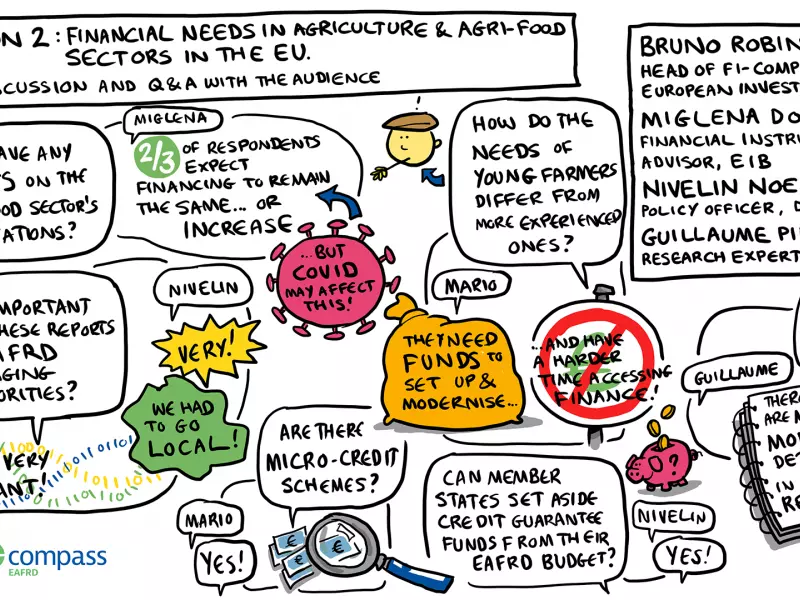 ON 2: FINANCIAL NEEDS IN AGRICULTURE & AGRI-FOOD
SECTORS IN THE EU.
SCUSSION AND Q&A WITH THE AUDIENCE
BRUNO ROBIN
HEAD OF FI-COMP
EUROPEAN INVEST
MIGLENA DO
FINANCIAL INSTR
ADVISOR, EIB
NIVELIN NOE
POLICY OFFICER, D
GUILLAUME PI
RESEARCH EXPERT
AVE ANY
S ON THE
OOD SECTOR'S
TATIONS?
MIGLENA
2/3 OF RESPONDENTS
EXPECT
FINANCING TO REMAIN
THE SAME... OR
INCREASE
...BUT
COVID
MAY AFFECT
THIS!
HOW DO THE
NEEDS OF
YOUNG FARMERS
DIFFER FROM
MORE EXPERIENCED
ONES?
MARIO
THEY NEED
FUNDS TO
SET UP &
MODERNISE...
...AND HAVE
A HARDER
TIME ACCESSING
FINANCE!
IMPORTANT
HESE REPORTS
AFRD
AGING
ORITIES?
NIVELIN
VERY!
WE HAD
TO GO
LOCAL!
VERY
ANT!
ARE THERE
MICRO-CREDIT
SCHEMES?
MARIO
YES!
CAN MEMBER
STATES SET ASIDE
CREDIT GUARANTEE
FUNDS FROM THEIR
EAFRD BUDGET?
NIVELIN
YES!
GUILLAUME
THERE
ARE M
MO
DET
IN
RE
compass
EAFRD